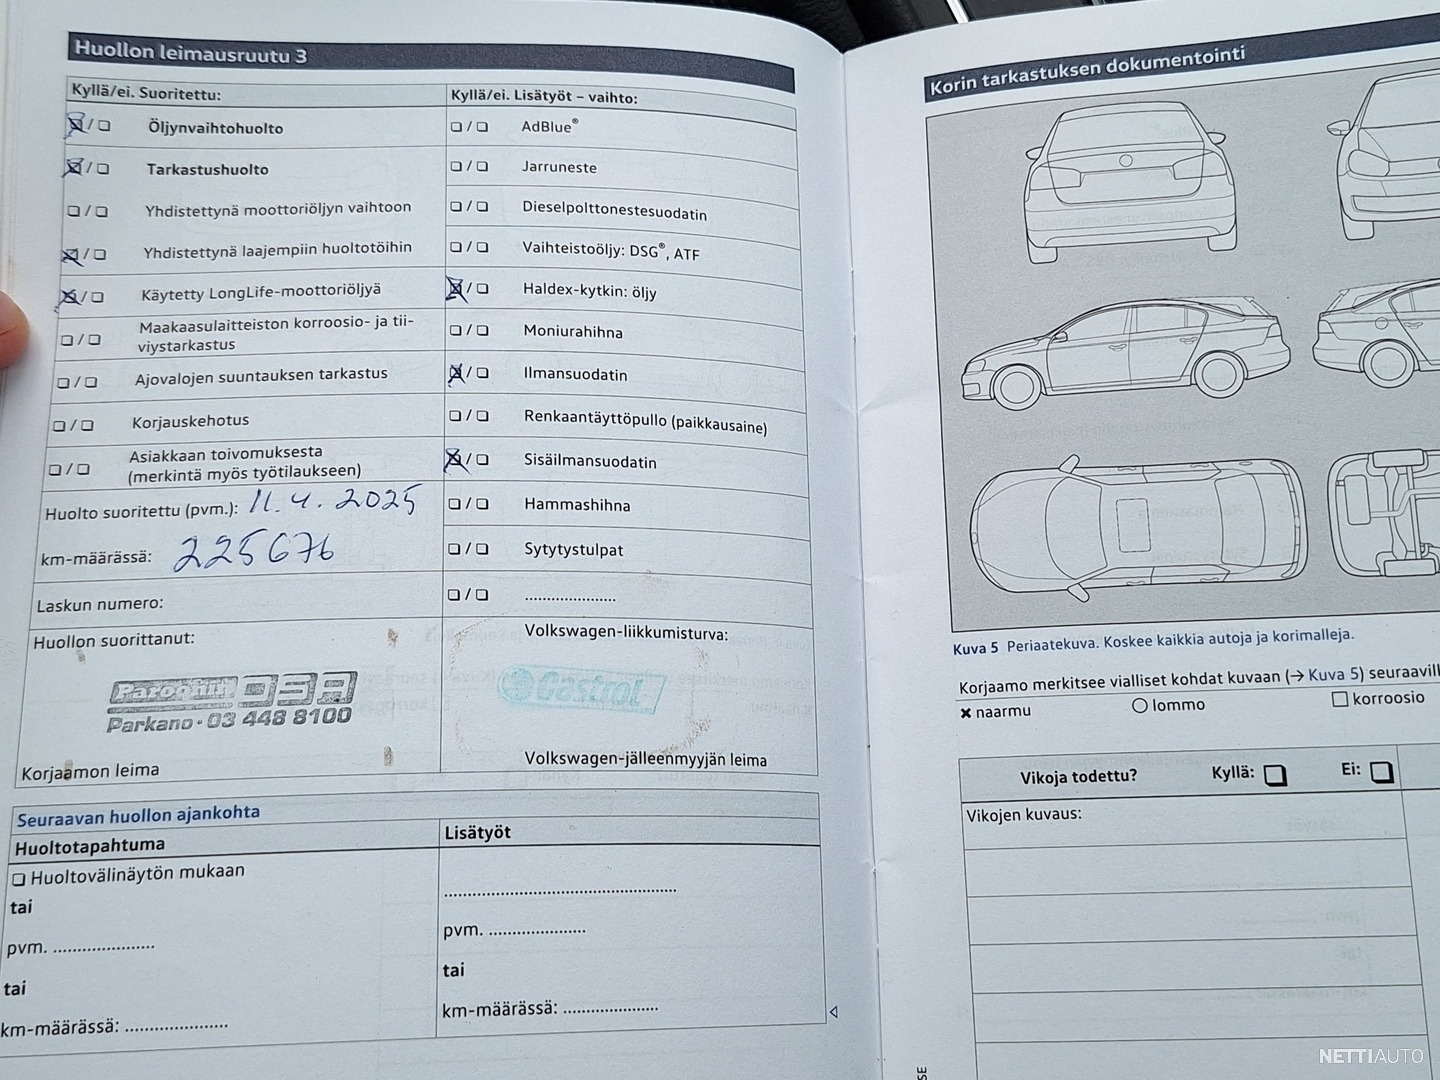 Huollon leimausruutu 3
Kyllä/ei. Suoritettu:
Öljynvaihtohuolto
Tarkastushuolto
Yhdistettynä moottoriöljyn vaihtoon
Yhdistettynä laajempiin huoltotöihin
Käytetty LongLife-moottoriöljyä
Maakaasulaitteiston korroosio- ja tii-
viystarkastus
Ajovalojen suuntauksen tarkastus
Korjauskehotus
Asiakkaan toivomuksesta
(merkintä myös työtilaukseen)
Huolto suoritettu (pvm.): 11.4.2025
km-määrässä: 225676
Laskun numero:
Huollon suorittanut:
Paroonin OSA
Parkano · 03 448 8100
Korjaamon leima
Kyllä/ei. Lisätyöt – vaihto:
AdBlue®
Jarruneste
Dieselpolttonestesuodatin
Vaihteistoöljy: DSG®, ATF
Haldex-kytkin: öljy
Moniurahihna
Ilmansuodatin
Renkaantäyttöpullo (paikkausaine)
Sisäilmansuodatin
Hammashihna
Sytytystulpat
....................
Volkswagen-liikkumisturva:
Castrol
Volkswagen-jälleenmyyjän leima
Seuraavan huollon ajankohta
Huoltotapahtuma
Huoltovälinäytön mukaan
tai
pvm. ....................
tai
km-määrässä: ....................
Lisätyöt
..................................................
pvm. ....................
tai
km-määrässä: ....................
Korin tarkastuksen dokumentointi
Kuva 5 Periaatekuva. Koskee kaikkia autoja ja korimalleja.
Korjaamo merkitsee vialliset kohdat kuvaan (→ Kuva 5) seuraavill
naarmu
lommo
korroosio
Vikoja todettu? Kyllä: Ei:
Vikojen kuvaus:
SE
NETTIAUTO